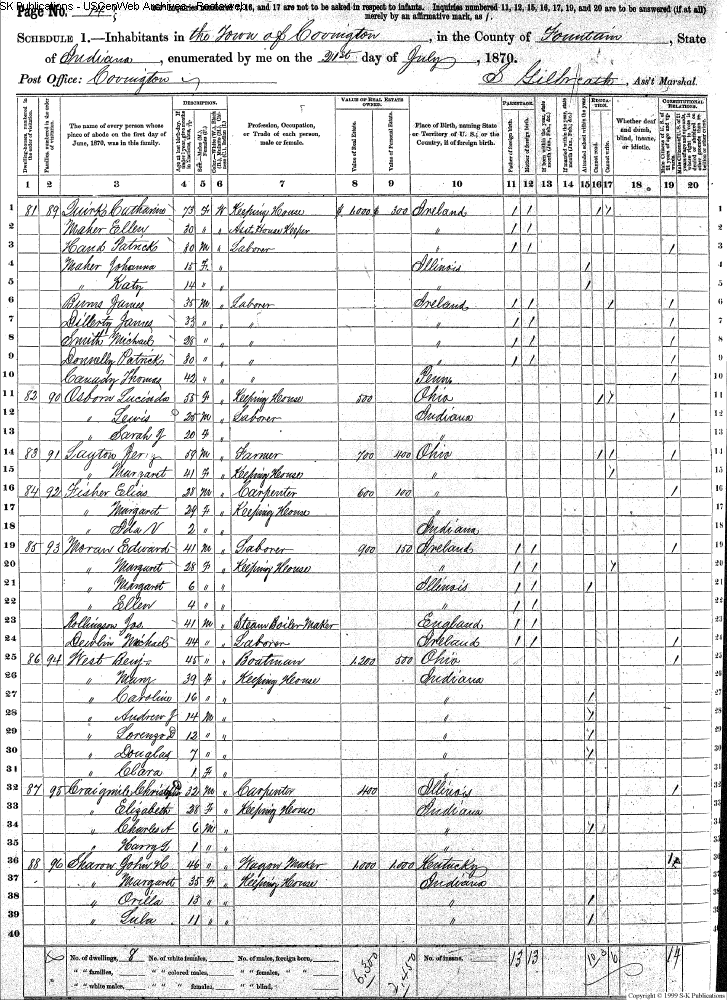 SK Publications - USGenWeb Archives - Rootsweb
Page No. 14 Inquiries numbered 7, 16, and 17 are not to be asked in respect to infants. Inquiries numbered 11, 12, 15, 16, 17, 19, and 20 are to be answered (if at all) merely by an affirmative mark, as /.
SCHEDULE 1.—Inhabitants in the Town of Covington, in the County of Fountain, State
of Indiana, enumerated by me on the 21st day of July, 1870.
Post Office: Covington S Gilbreath, Ass't Marshal.
DESCRIPTION. VALUE OF REAL ESTATE OWNED. PARENTAGE. EDUCATION. CONSTITUTIONAL RELATIONS.
Dwelling-houses, numbered in the order of visitation.
Families, numbered in the order of visitation.
The name of every person whose place of abode on the first day of June, 1870, was in this family.
Profession, Occupation, or Trade of each person, male or female.
Value of Real Estate.
Value of Personal Estate.
Place of Birth, naming State or Territory of U. S.; or the Country, if of foreign birth.
Father of foreign birth.
Mother of foreign birth.
Attended school within the year.
Cannot read.
Cannot write.
Whether deaf and dumb, blind, insane, or idiotic.
1 2 3 4 5 6 7 8 9 10 11 12 13 14 15 16 17 18 19 20
1 81 89 Quirk Catharine 73 F W Keeping House $ 1,000 $ 300 Ireland / / / / 1
2 Maher Ellen 30 " " Asst House Keeper " / / 2
3 Hand Patrick 80 M " Laborer " / / / 3
4 Maher Johanna 15 F " Illinois / 4
5 " Katy 14 " " " / 5
6 Burns James 35 M " Laborer Ireland / / / / 6
7 James 33 " " " " / / / 7
8 Smith Michael 28 " " " " / / / 8
9 Donnelly Patrick 30 " " " " / / / 9
10 Canady Thomas 42 " " " Penn / 10
11 82 90 Osborn Lucinda 55 F " Keeping House 500 Ohio / / 11
12 " Lewis 25 M " Laborer Indiana / 12
13 " Sarah J 20 F " " 13
14 83 91 Layton 59 M " Farmer 700 400 Ohio / / / 14
15 " Margaret 41 F " Keeping House " / 15
16 84 92 Fisher Elias 28 M " Carpenter 600 100 " / 16
17 " Margaret 29 F " Keeping House " 17
18 " Ida V 2 " " Indiana 18
19 85 93 Moran Edward 41 M " Laborer 900 150 Ireland / / / 19
20 " Margaret 28 F " Keeping House " / / / 20
21 " Margaret 6 " " Illinois / / / 21
22 " Ellen 4 " " " / / 22
23 Rollingson Jos. 41 M " Steam Boiler Maker England / / 23
24 Devlin Michael 44 " " Laborer Ireland / / / 24
25 86 94 West Benj. 45 " " Boatman 1,200 500 Ohio / 25
26 " Mary 39 F " Keeping House Indiana 26
27 " Caroline 16 " " " / 27
28 " Andrew J 14 M " " / 28
29 " Lorenzo D 12 " " " / 29
30 " Douglas 7 " " " / 30
31 " Clara 1 F " " 31
32 87 95 Craigmile 32 M " Carpenter 400 Illinois / 32
33 " Elizabeth 28 F " Keeping House Indiana 33
34 " Charles A 6 M " " / 34
35 " Harry 1 " " " 35
36 88 96 Sharon John H 46 " " Wagon Maker 1,000 1,000 Kentucky / 36
37 " Margaret 35 F " Keeping House Indiana 37
38 " Orilla 13 " " " / 38
39 " Lula 11 " " " / 39
40 40
No. of dwellings, 8 No. of white females, No. of males, foreign born, No. of insane, 13 13 10 3 6 14
" " families, " " colored males, " " females, " "
" " white males, " " " females, " " blind,
Copyright © 1999 S-K Publications